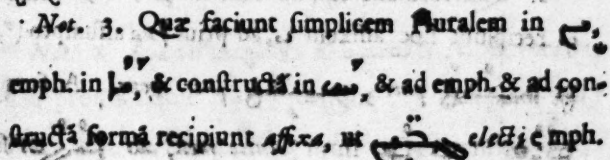 Not. 3. Quæ faciunt ſimplicem Pluralem in
emph. in , & conſtructã in , & ad emph. & ad con-
ſtructã formã recipiunt affixa, ut electi e mph.